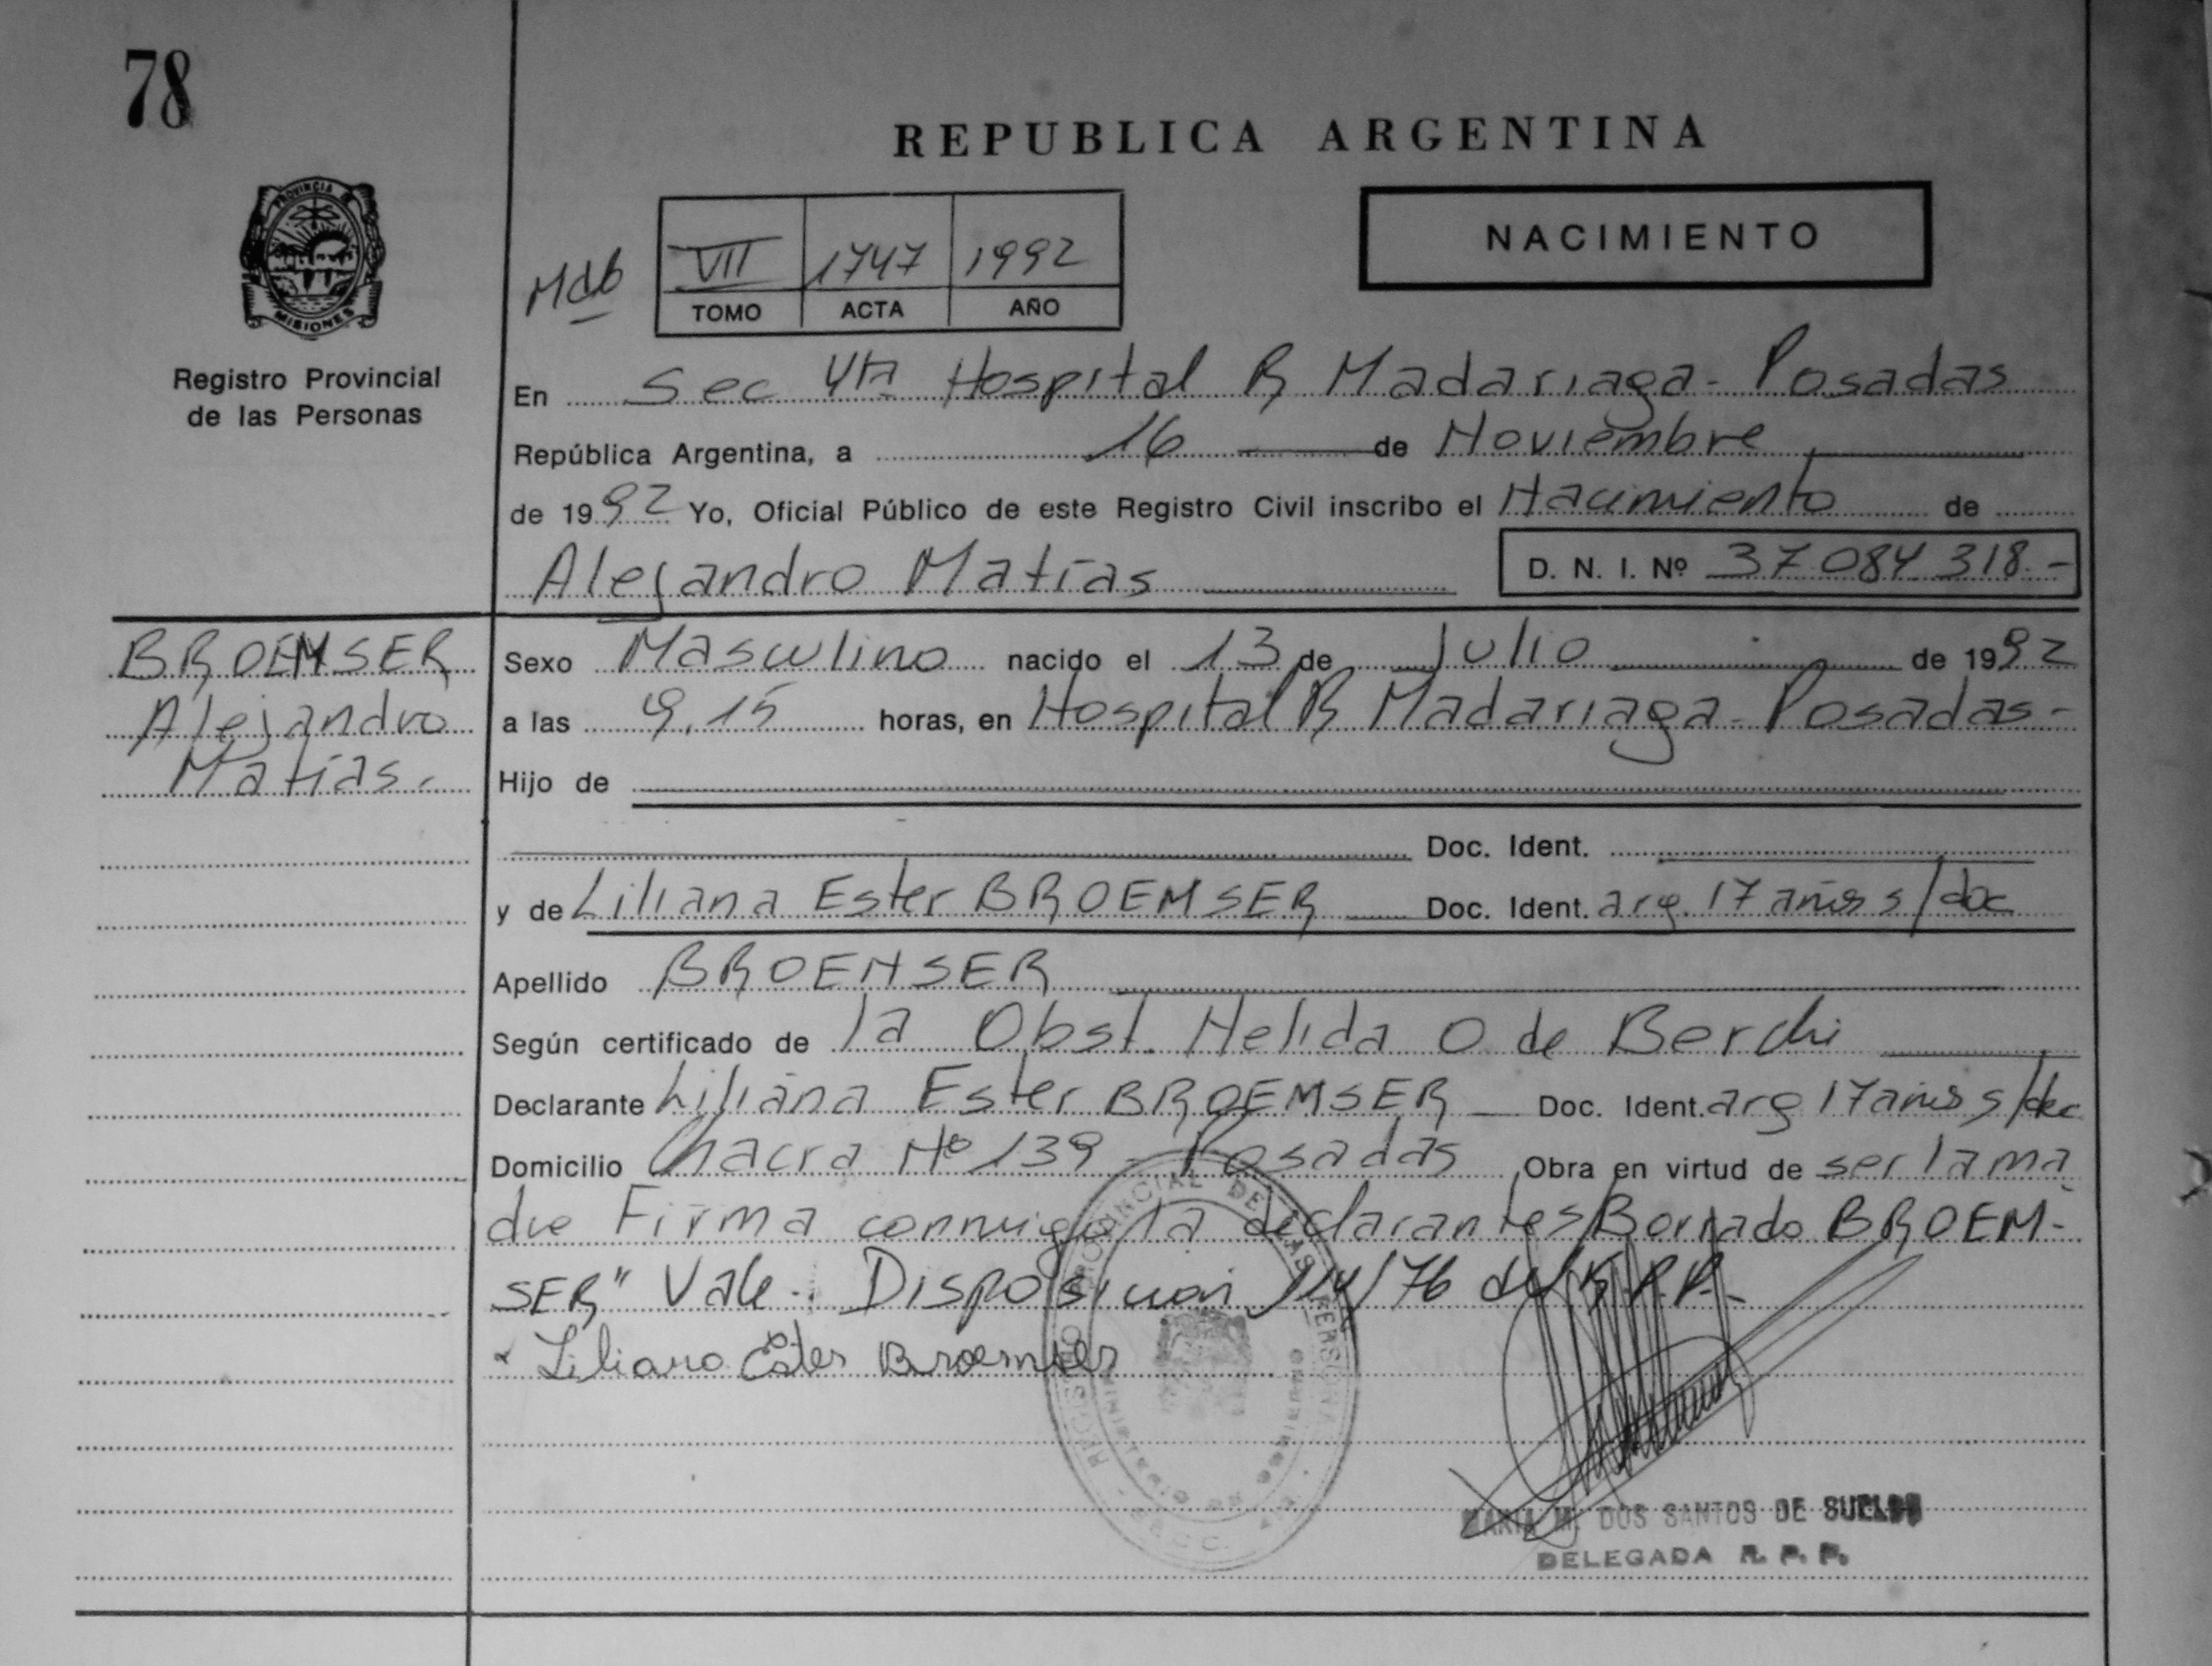 78
REPUBLICA ARGENTINA
NACIMIENTO
PROVINCIA
MISIONES
Registro Provincial
de las Personas
Mdb
VII 1747 1992
TOMO ACTA AÑO
En Sec 4ta Hospital R Madariaga - Posadas
República Argentina, a 16 de Noviembre
de 1992 Yo, Oficial Público de este Registro Civil inscribo el Nacimiento de
Alejandro Matías D. N. I. Nº 37 084 318.-
BROEMSER
Alejandro
Matías.
Sexo Masculino nacido el 13 de Julio de 1992
a las 9,15 horas, en Hospital R Madariaga - Posadas-
Hijo de
Doc. Ident.
y de Liliana Ester BROEMSER Doc. Ident. arg. 17 años s/doc
Apellido BROEMSER
Según certificado de la Obst. Nelida O de Berchi
Declarante Liliana Ester BROEMSER Doc. Ident. arg 17 años s/doc
Domicilio Chacra Nº 139 - Posadas Obra en virtud de ser la ma
dre Firma conmigo la declarante s/Borrado BROEM-
SER" Vale. Disposicion /76 del R.P.P.-
Liliana Ester Broemser
REGISTRO PROVINCIAL DE LAS PERSONAS
MINISTERIO DE GOBIERNO
MARIA M. DOS SANTOS DE
DELEGADA R. P. P.